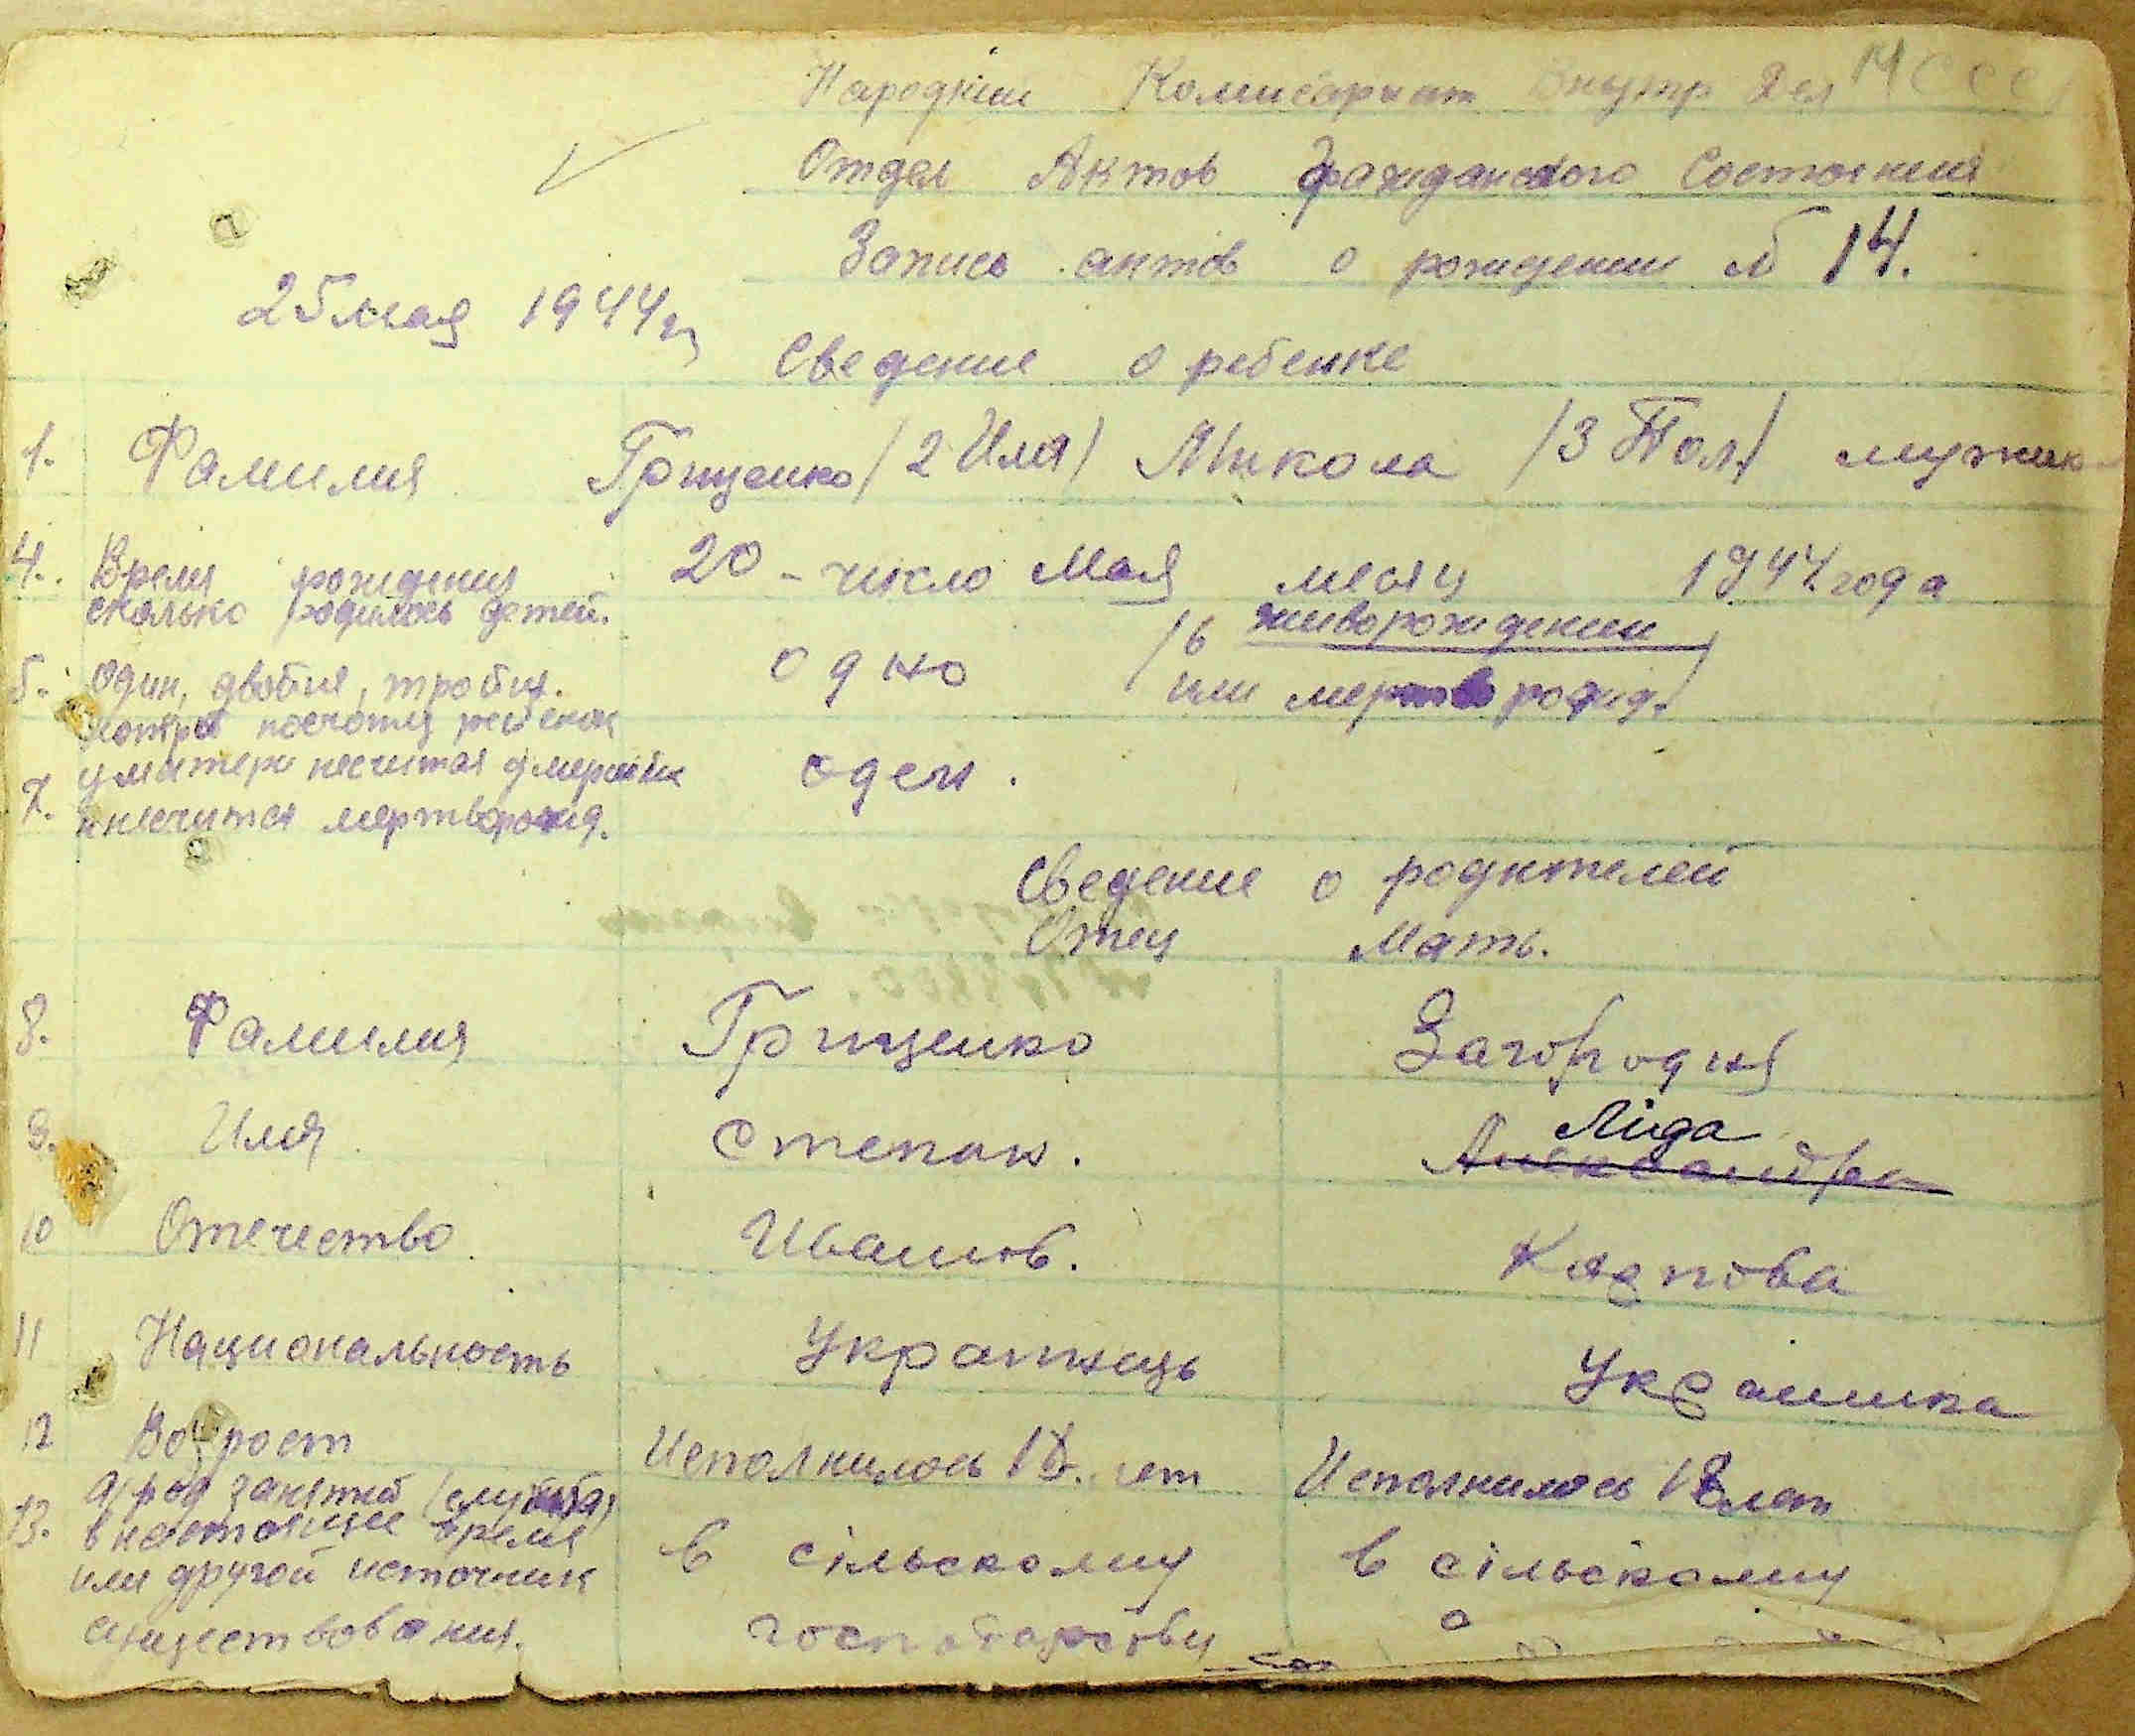 Народний Комисариат Внутр Дел МССС
Отдел Актов Гражданского Состояния
Запись актов о рождении № 14.
25 мая 1944 г
Сведение о ребенке
1. Фамилия Грищенко /2 Имя/ Микола /3 Пол/ мужик
4. Время рождения 20 - число Мая месяц 1944 года
сколько родилось детей.
5. один, двойня, тройня. одно /6 живорождении
или мертворожд./
посчоту ребенок
7. у матери несчитая умерших оден.
мертворожд.
Сведение о родителей
Отец Мать.
8. Фамилия Грищенко Загородня
9. Имя Степан. Ліда
Александра
10 Отечество Иванов. Карпова
11 Национальность Украинець Украинка
12 Возрост Исполнилось лет Исполнилось 18 лет
13. а/ род занятий /служба/
в настоящее время в сільскому в сільскому
или другой источник
существования. господарстви